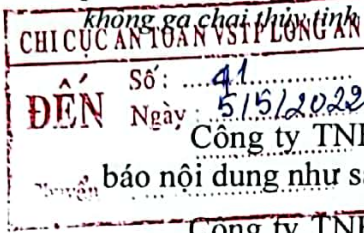 không ga chai thủy tinh
CHI CỤC AN TOÀN VSTP LONG AN
ĐẾN
Số: 41
Ngày: 5/5/2022
Công ty TNH
báo nội dung như s
Công ty TNH